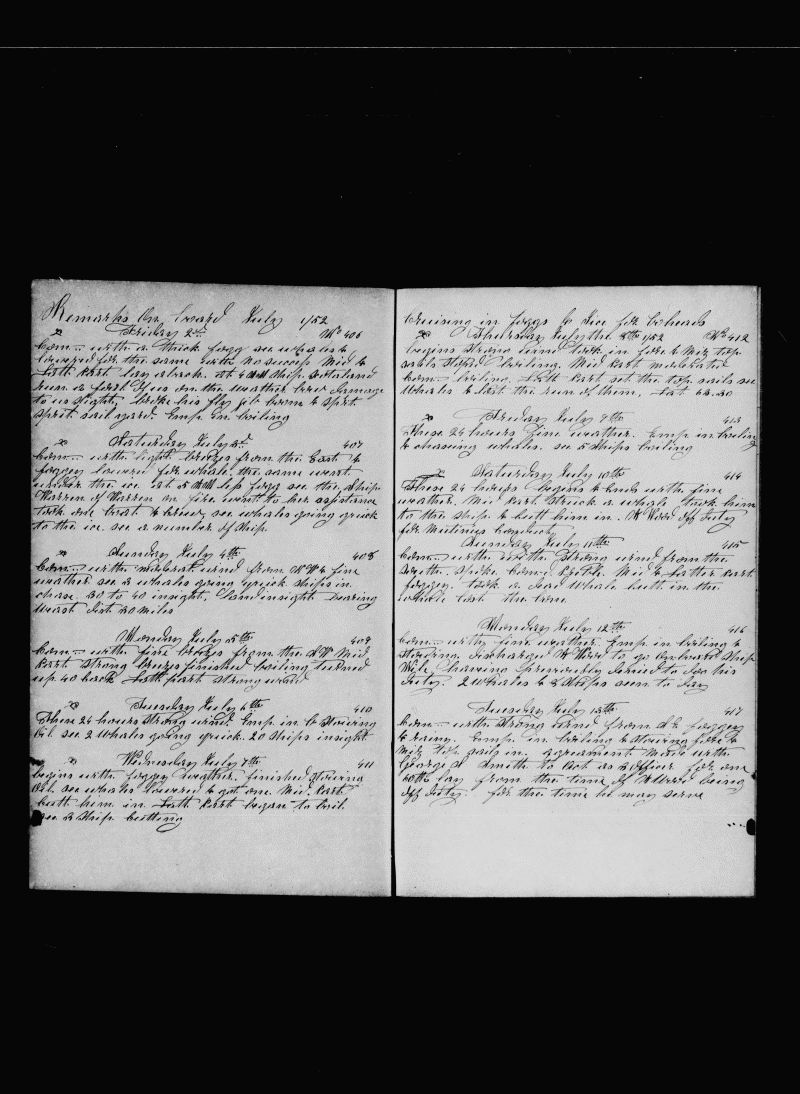 Remarks On board July 1/52
Friday 2nd No 406
Com— with a thick fogg see whales &
lowered for the same with no success Mid &
Lath Part lay aback. at 4 AM Ship
run a foul of us on the weather bow damage
to us slight, broke his fly jib boom & sprit
sprit sail yard. Emp in boiling
Saturday July 3d 407
Com— with light breeze from the East &
foggey lowered for whale. the same went
under the ice at 5 AM less fogg see the Ship
Warren of Warren on fire. went to her assistance
took one boat & crew, see whales going quick
to the ice. see a number of ship
Sunday July 4th 408
Com— with moderat wind from W fine
weather see 2 whales going quick ships in
chase 30 to 40 insight, land insight bearing
West dist 20 miles
Monday July 5th 409
Com— with fine breeze from the Mid
Part strong breeze finished boiling turned
up 40 back Lath part strong wind
Tuesday July 6th 410
These 24 hours strong wind. Emp in stowing
Oil. see 2 whales going quick. 20 ships insight
Wednesday July 7th 411
begins with foggy weather. finished stowing
Oil. see whales lowered & got one. Mid. Part
cutt him in Lath Part began to boil.
see 2 ship cutting
Cruising in foggs & Ice for boheads
Thursday July the 8th 1/52 No 412
begins strong wind took in fore & Miz top
sails boiling. Mid Part moderated
Com— boiling. Lath Part set the top sails see
whales & lost the run of them. Lat 66.30
Friday July 9th 413
These 24 hours fine weather. Emp in boiling
& chaseing whales. see 5 ships boiling
Saturday July 10th 414
These 24 hours begins & ends with fine
weather. Mid Part Struck a whale took him
to the ship & cutt him in. off duty
for Mutinys Conduct
Sunday July 11th 415
Com— with strong wind from the
South. Mid & Latter Part
foggey. took a dead whale cutt in the
whale lost the bone
Monday July 12th 416
Com— with fine weather. Emp in boiling &
stowing. discharged to go on board ship
having previously denied to do his
duty. 2 whales & 8 ships seen to day
Tuesday July 13th 417
Com— with strong wind from foggey
& rainy. Emp in boiling & stowing fore &
Miz top sails in. agreement Made with
George Smith to Act as Officer for one
60th lay from the time of being
off duty. for the time he may serve